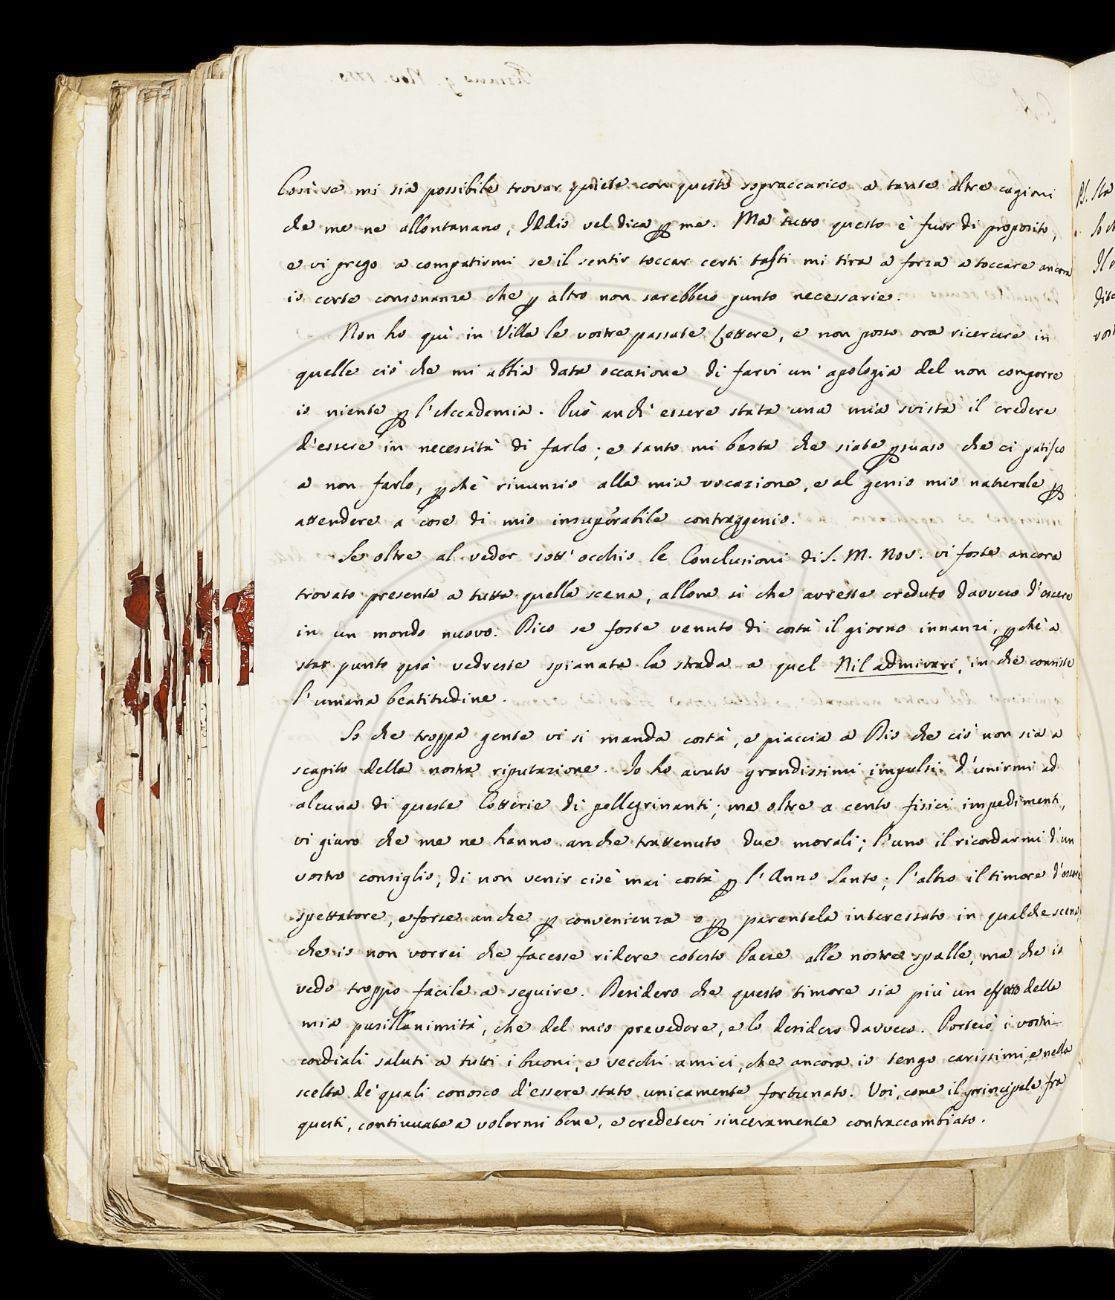 Così se mi sia possibile trovar quiete con questo sopraccarico a tante altre cagioni
che me ne allontanano, Iddio vel dica p me. Ma tutto questo è fuor di proposito,
e vi prego a compatirmi se il sentir toccar certi tasti mi tira a forza a toccare ancora
io certe consonanze che p altro non sarebbero punto necessarie.
Non ho quì in Villa le vostre passate Lettere, e non posso ora ricercare in
quelle ciò che mi abbia data occasione di farvi un' apologia del non comporre
io niente p l'Accademia. Può anch' essere stata una mia svista il credere
d'essere in necessità di farlo; e tanto mi basta che siate psuaso che ci patisco
a non farlo, pchè rinunzio alla mia vocazione, e al genio mio naturale p
attendere a cose di mio insuperabile contraggenio.
Se oltre al veder sott' occhio le Conclusioni di S. M. Nov. vi foste ancora
trovato presente a tutta quella scena, allora si che avreste creduto davvero d'essere
in un mondo nuovo. Dico se foste venuto di costà il giorno innanzi, pchè a
star punto quà vedreste spianata la strada a quel Nil admirari, in che consiste
l'umana beatitudine.
So che troppa gente vi si manda costà, e piaccia a Dio che ciò non sia a
scapito della nostra riputazione. Io ho avuto grandissimi impulsi d'unirmi ad
alcuna di queste Cotterie di pellegrinanti; ma oltre a cento fisici impedimenti,
vi giuro che me ne hanno anche trattenuto due morali; l'uno il ricordarmi d'un
vostro consiglio, di non venir cioè mai costà p l'Anno Santo; l'altro il timore d'essere
spettatore, e forse anche p convenienza o p parentela interessato in qualche scena,
che io non vorrei che facesse ridere cotesto Paese alle nostre spalle, ma che io
vedo troppo facile a seguire. Desidero che questo timore sia più un effetto della
mia pusillanimità, che del mio prevedere, e lo desidero davvero. Porterò i vostri
cordiali saluti a tutti i buoni, e vecchi amici, che ancora io tengo carissimi, e nella
scelta de' quali conosco d'essere stato unicamente fortunato. Voi, come il principale fra
questi, continuate a volermi bene, e credetevi sinceramente contraccambiato.